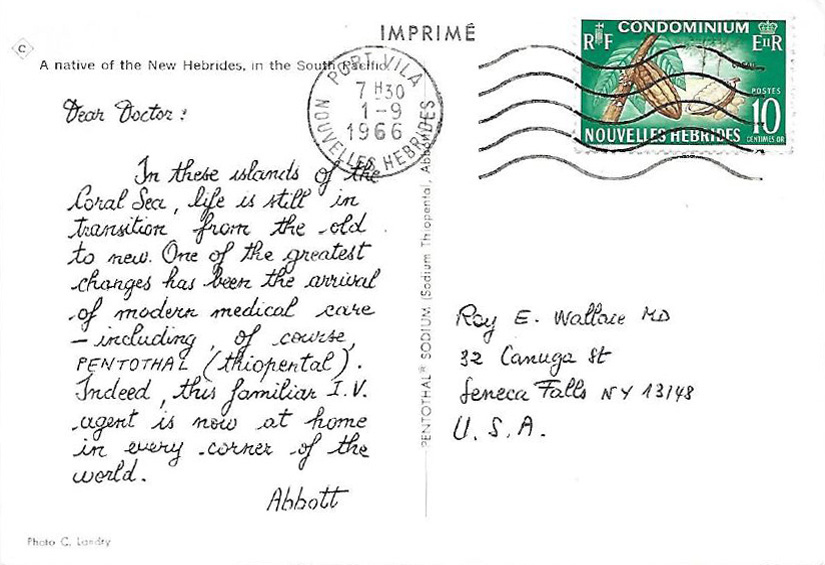 C
IMPRIMÉ
A native of the New Hebrides, in the South Pacific
PORT VILA
7 H30
1-9
1966
NOUVELLES HEBRIDES
CONDOMINIUM
RF
EIIR
CACAO
POSTES
10
CENTIMES OR
NOUVELLES HEBRIDES
Dear Doctor:
In these islands of the
Coral Sea, life is still in
transition from the old
to new. One of the greatest
changes has been the arrival
of modern medical care
– including, of course,
PENTOTHAL (thiopental).
Indeed, this familiar I.V.
agent is now at home
in every corner of the
world.
Abbott
PENTOTHAL® SODIUM (Sodium Thiopental, Abbott)
Roy E. Wallace MD
32 Canuga St
Seneca Falls NY 13148
U.S.A.
Photo C. Landry